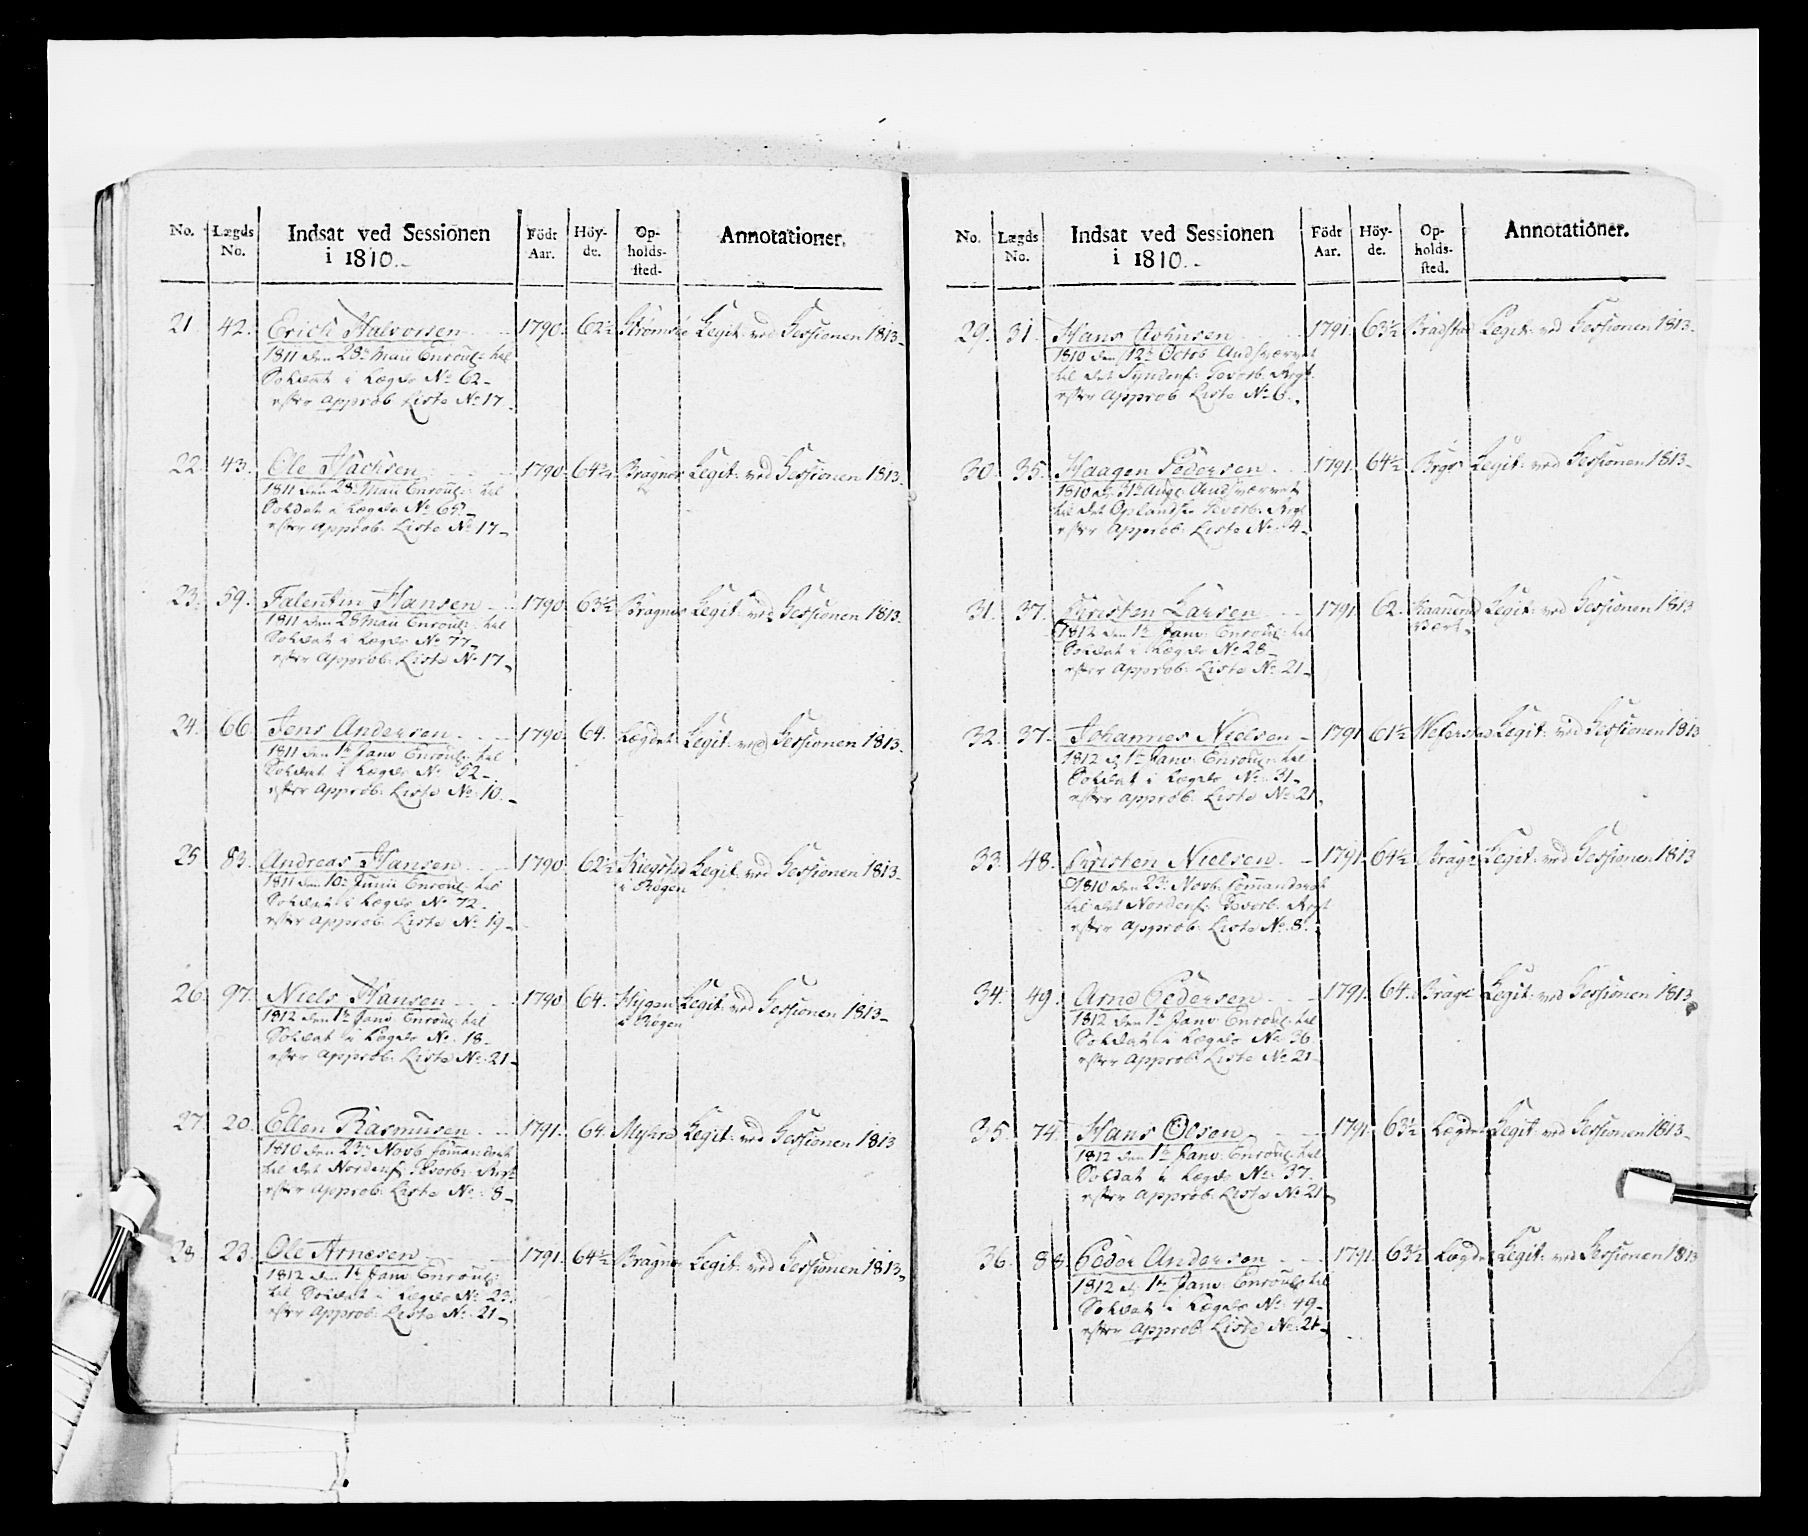 No. Lægds No. Indsat ved Sessionen i 1810. Födt Aar. Höyde. Opholdssted. Annotationer.
21. 42. Erich Halvorsen 1790. 62½ Strømsøe Legit: ved Sessionen 1813.
1811 den 28de Maii Enroul: til
Soldat i Lægds No 62.
efter Approb Liste No 17.
22. 43. Ole 1790. 64½ Bragnes Legit: ved Sessionen 1813.
1811 den 28de Maii Enroul: til
Soldat i Lægds No 65.
efter Approb: Liste No 17.
23. 59. Falentin Hansen 1790. 63½ Bragnes Legit: ved Sessionen 1813.
1811 den 28 Maii Enroul: til
Soldat i Lægds No 77.
efter Approb: Liste No 17.
24. 66. Jens Andersen 1790. 64. Lægdet Legit: ved Sessionen 1813.
1811 den 1te Janv: Enroul: til
Soldat i Lægds No 52.
efter Approb: Liste No 10.
25. 83. Andreas Hansen 1790. 62½ Legit: ved Sessionen 1813.
i Røgen
1811 den 10de Junii Enroul: til
Soldat i Lægds No 72.
efter Approb: Liste No 19.
26. 97. Niels Hansen 1790. 64. Hygen Legit: ved Sessionen 1813.
i Røgen
1812 den 1te Janv: Enroul: til
Soldat i Lægds No 18.
efter Approb: Liste No 21.
27. 20. Ellen Rasmusen 1791. 64. Myhre Legit: ved Sessionen 1813
1810 den 23de Novb
til det Nordenf: Regt
efter Approb: Liste No 8.
28. 23. Ole Arnesen 1791. 64½ Bragnes Legit: ved Sessionen 1813.
1812 den 1te Janv: Enroul:
til Soldat i Lægds No 23.
efter Approb: Liste No 21.
No. Lægds No. Indsat ved Sessionen i 1810. Födt Aar. Höyde. Opholdssted. Annotationer.
29. 31. Hans 1791. 63½ Legit: ved Sessionen 1813.
1810 den 12te Octob
til det Regt.
efter Approb Liste No 6.
30. 35. Haagen Pedersen 1791. 64½ Legit: ved Sessionen 1813.
1810 d. 31te Aug:
til det Oplandske Regt
efter Approb: Liste No 4.
31. 37. Christen Larsen 1791. 62. Legit: ved Sessionen 1813
1812 den 1te Janv: Enroul: til
Soldat i Lægds No 28.
efter Approb: Liste No 21.
32. 37. Johannes Nielsen 1791 61½ Legit: ved Sessionen 1813
1812 d. 1te Janv: Enroul: til
Soldat i Lægds No 31.
efter Approb: Liste No 21.
33. 48. Christen Nielsen 1791. 64½ Brage Legit: ved Sessionen 1813
1810 den 23de Novb:
til det Nordenf: Regt
efter Approb: Liste No 8.
34. 49. Arne Pedersen 1791. 64. Brage Legit: ved Sessionen 1813
1812 den 1te Janv: Enroul: til
Soldat i Lægds No 36.
efter Approb: Liste No 21.
35. 74. Hans Olsen 1791. 63½ Lægdet Legit: ved Sessionen 1813.
1812 den 1te Janv: Enroul: til
Soldat i Lægds No 37.
efter Approb: Liste No 21
36. 88. Peder Andersen 1791. 63½ Lægdet Legit: ved Sessionen 1813
1812 d. 1te Janv: Enroul: til
Soldat i Lægds No 49.
efter Approb: Liste No 21.